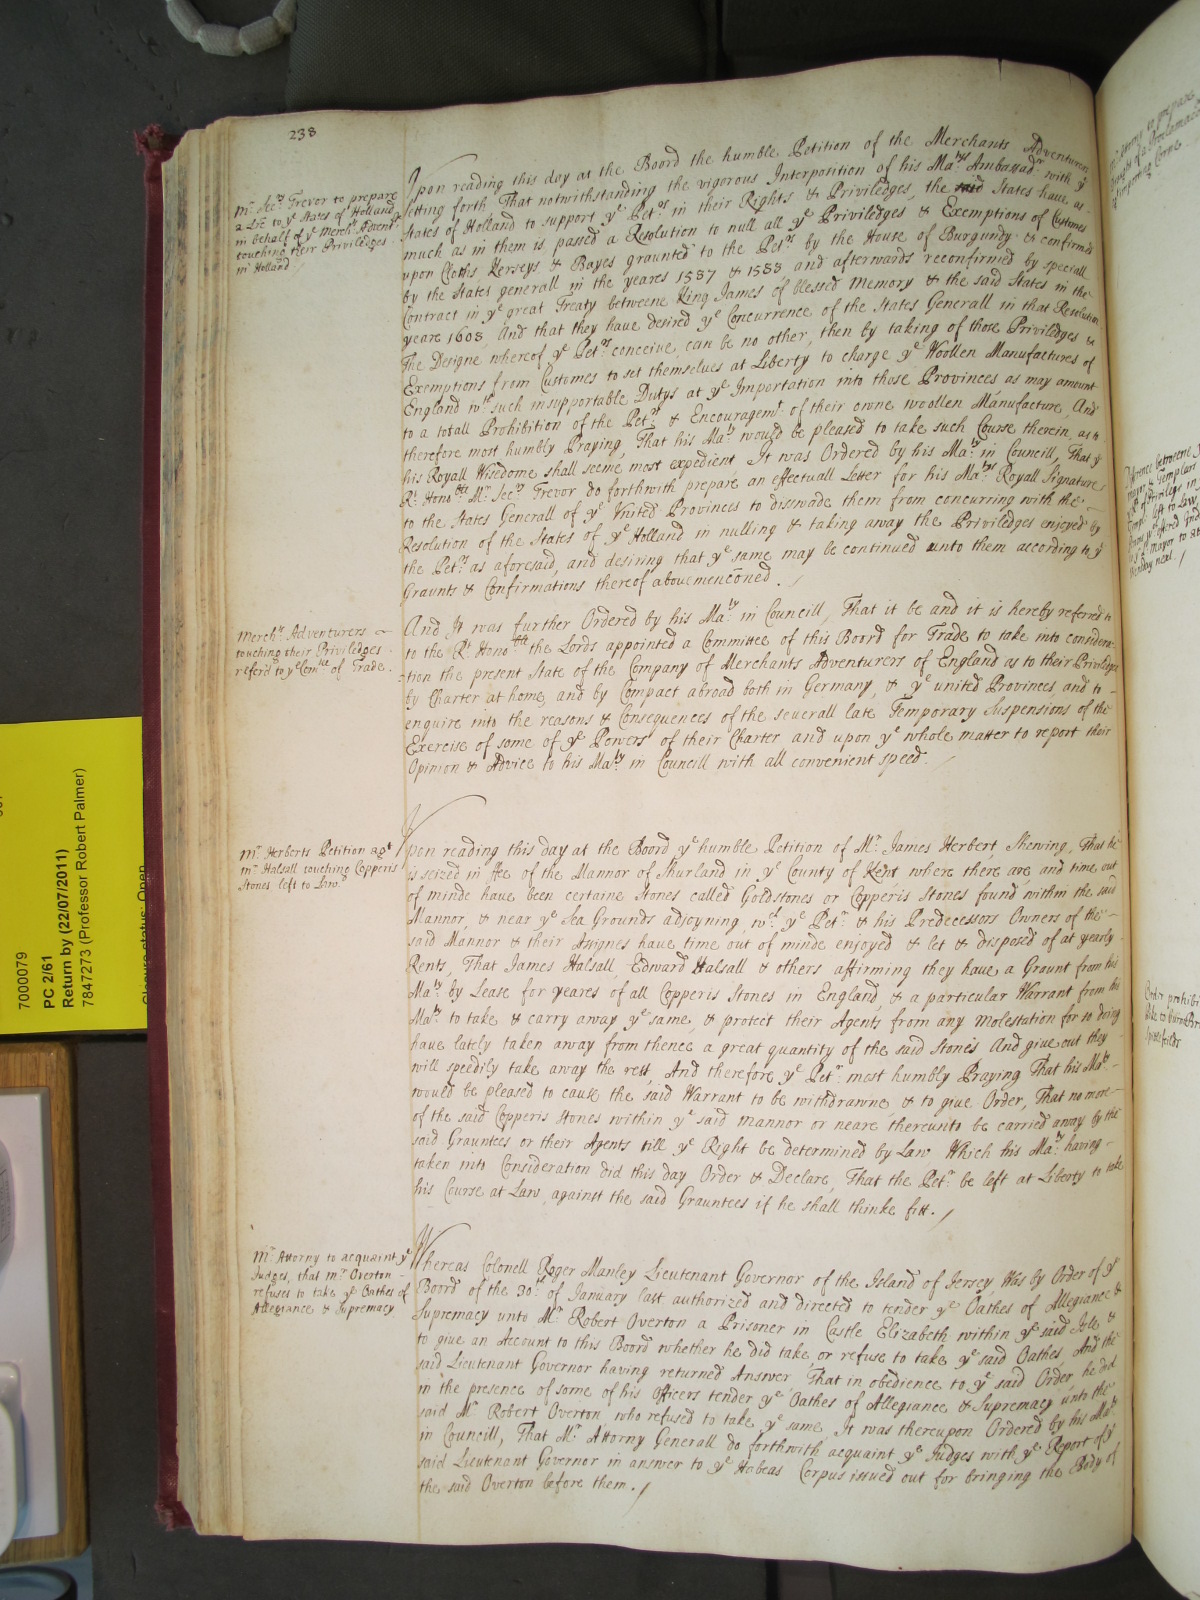 238
Mr. Secry. Trevor to prepare
a Lre to ye States of Holland
in behalf of ye Mercht. Advent.
touching their Priviledges
in Holland.
Upon reading this day at the Board the humble Petition of the Merchants Adventurers
setting forth, That notwithstanding the vigorous Interposition of his Matys. Ambassadr. with ye
States of Holland to support ye Petrs. in their Rights & Priviledges, the said States have as
much as in them is, passed a Resolution to null all ye Priviledges & Exemptions of Customes
upon Cloths Kerseys & Bayes graunted to the Petrs. by the House of Burgundy & confirmed
by the States generall in the yeares 1587 & 1588 and afterwards reconfirmed by speciall
Contract in ye great Treaty betweene King James of blessed Memory & the said States in the
yeare 1608, And that they have desired ye Concurrence of the States Generall in that Resolution
The Designe whereof ye Petrs. conceive, can be no other, then by taking of those Priviledges &
Exemptions from Customes to set themselves at Liberty to charge ye Woollen Manufactures of
England wth. such insupportable Dutys at ye Importation into those Provinces as may amount
to a totall Prohibition of the Petrs. & Encouragemt. of their owne woollen Manufacture, And
therefore most humbly Praying, That his Maty. would be pleased to take such Course therein, as to
his Royall Wisedome shall seeme most expedient. It was Ordered by his Maty. in Councill, That ye
Rt. Honoble. Mr. Secry. Trevor do forthwith prepare an effectuall Letter for his Matys. Royall Signature
to the States Generall of ye United Provinces to disswade them from concurring with the
Resolution of the States of ye Holland in nulling & taking away the Priviledges enjoyed by
the Petrs. as aforesaid, and desiring that ye same may be continued unto them according to ye
Graunts & Confirmations thereof abovemencõned.
Mercht. Adventurers
touching their Priviledges
referd to ye Comtee of Trade.
And It was further Ordered by his Maty. in Councill, That it be and it is hereby referred to
to the Rt. Honoble. the Lords appointed a Committee of this Board for Trade to take into considera-
-tion the present State of the Company of Merchants Adventurers of England as to their Priviledges
by Charter at home, and by Compact abroad both in Germany, & ye united Provinces, and to
enquire into the reasons & Consequences of the severall late Temporary Suspensions of the
Exercise of some of ye Powers of their Charter and upon ye whole matter to report their
Opinion & Advice to his Maty. in Councill with all convenient speed.
Mr. Herberts Petition agt.
Mr. Halsall touching Copperis
Stones left to Law.
Upon reading this day at the Board ye humble Petition of Mr. James Herbert, Shewing, That he
is seized in ffee of the Mannor of Shurland in ye County of Kent where there are, and time out
of minde have been certaine Stones called Goldstones or Copperis Stones found within the said
Mannor, & near ye Sea Grounds adjoyning, wch. ye Petr. & his Predecessors Owners of the
said Mannor & their Assignes have time out of minde enjoyed & let & disposed of at yearly
Rents, That James Halsall, Edward Halsall & others affirming they have a Graunt from his
Maty. by Lease for yeares of all Copperis Stones in England, & a particular Warrant from his
Maty. to take & carry away ye same, & protect their Agents from any Molestation for so doing
have lately taken away from thence a great quantity of the said Stones And give out they
will speedily take away the rest, And therefore ye Petr. most humbly Praying That his Maty.
would be pleased to cause the said Warrant to be withdrawne, & to give Order, That no more
of the said Copperis stones within ye said Mannor or neare thereunto be carried away by the
said Grauntees or their Agents till ye Right be determined by Law. Which his Maty. having
taken into Consideration did this day Order & Declare, That the Petr. be left at Liberty to take
his Course at Law, against the said Grauntees if he shall thinke fitt.
Mr. Attorny to acquaint ye
Judges, that Mr. Overton
refuses to take ye Oathes of
Allegiance & Supremacy
Whereas Colonell Roger Manley Lieutenant Governor of the Island of Jersey, Was by Order of ye
Board of the 30th. of January last authorized and directed to tender ye Oathes of Allegiance &
Supremacy unto Mr. Robert Overton a Prisoner in Castle Elizabeth within ye said Isle &
to give an Account to this Board whether he did take, or refuse to take ye said Oathes, And the
said Lieutenant Governor having returned Answer, That in obedience to ye said Order, he did
in the presence of some of his Officers tender ye Oathes of Allegiance & Supremacy unto the
said Mr. Robert Overton, who refused to take ye same, It was thereupon Ordered by his Maty.
in Councill, That Mr. Attorny Generall do forthwith acquaint ye Judges with ye Report of ye
said Lieutenant Governor in answer to ye Habeas Corpus issued out for bringing the Body of
the said Overton before them.
7000079
PC 2/61
Return by (22/07/2011)
7847273 (Professor Robert Palmer)
Closure status: Open